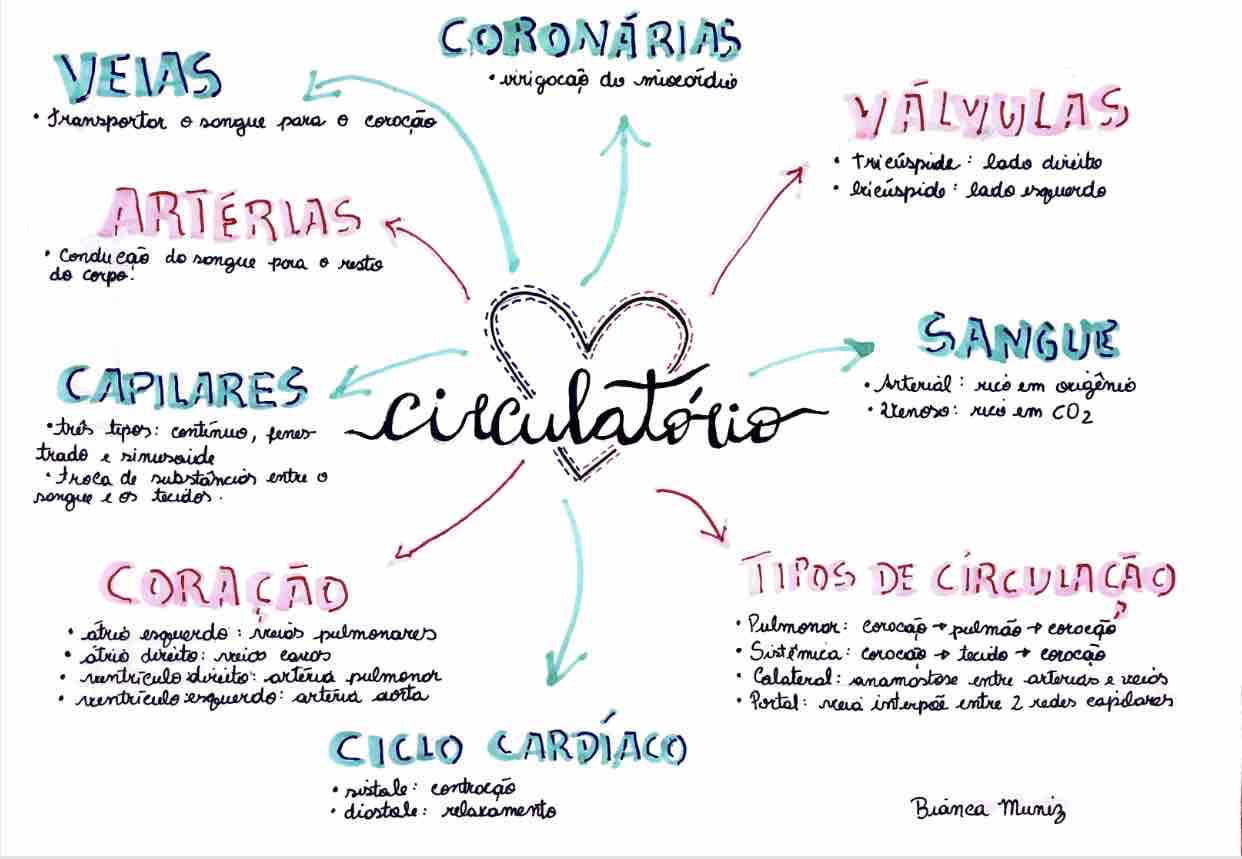 CORONÁRIAS
• irrigação do miocárdio
VEIAS
• Transportar o sangue para o coração
VÁLVULAS
• tricúspide: lado direito
• bicúspide: lado esquerdo
ARTÉRIAS
• Condução do sangue para o resto
do corpo.
SANGUE
• Arterial: rico em oxigênio
• Venoso: rico em CO2
CAPILARES
• três tipos: contínuo, fenes-
trado e sinusoide
• Troca de substâncias entre o
sangue e os tecidos.
circulatório
CORAÇÃO
• átrio esquerdo: veias pulmonares
• átrio direito: veias cavas
• ventrículo direito: artéria pulmonar
• ventrículo esquerdo: artéria aorta
TIPOS DE CÍRCULAÇÃO
• Pulmonar: coração → pulmão → coração
• Sistêmica: coração → tecido → coração
• Colateral: anamostose entre arterias e veias
• Portal: veia interpõe entre 2 redes capilares
CICLO CARDÍACO
• sístole: contração
• diástole: relaxamento
Bianca Muniz